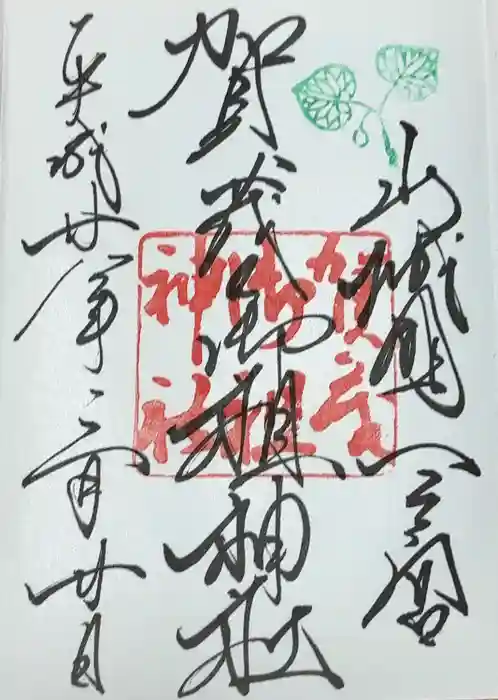 山城國一之宮
賀茂御祖神社
平成廿八年三月廿日
賀茂
御祖
神社